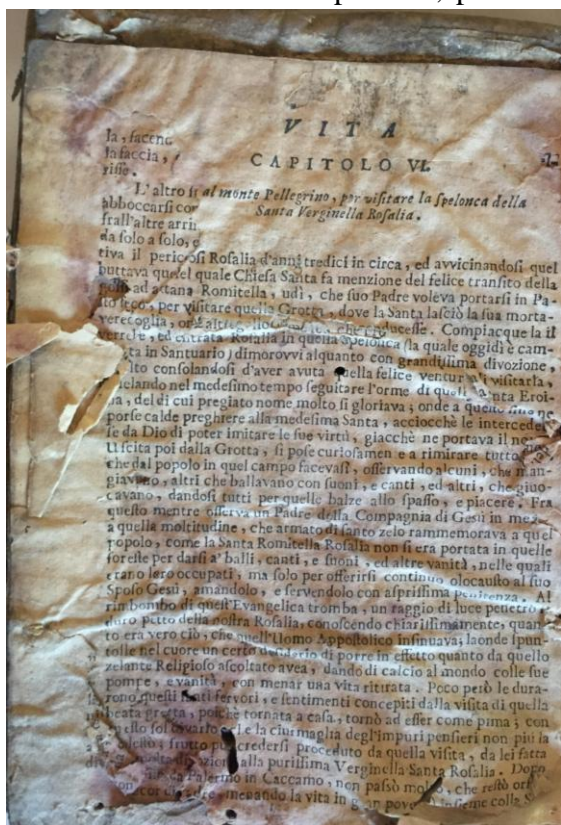 VITA
la, facend
la faccia,
risse.
CAPITOLO VI.
L'altro si al monte Pellegrino, per visitare la spelonca della
abboccarsi con Santa Verginella Rosalia.
frall'altre
da solo a solo,
tiva il Rosalia d'anni tredici in circa, ed avvicinandosi quel
buttava quel quale Chiesa Santa fa menzione del felice transito della
ad Romitella, udì, che suo Padre voleva portarsi in Pa-
per visitare quella Grotta, dove la Santa lasciò la sua morta-
Compiacque la il
ed entrata Rosalia in quella spelonca (la quale oggidì è cam-
in Santuario) dimorovvi alquanto con grandissima divozione,
consolandosi d'aver avuta quella felice ventura di visitarla,
nel medesimo tempo seguitare l'orme di quella Santa Eroi-
del di cui pregiato nome molto si gloriava; onde a
porse calde preghiere alla medesima Santa, acciocchè le intercedes-
se da Dio di poter imitare le sue virtù, giacchè ne portava il
Uscita poi dalla Grotta, si pose curiosamente a rimirare tutto
che dal popolo in quel campo facevasi, osservando alcuni, che man-
giavano, altri che ballavano con suoni, e canti, ed altri, che giuo-
cavano, dandosi tutti per quelle balze allo spasso, e piacere. Fra
questo mentre osserva un Padre della Compagnia di Gesù in mez-
a quella moltitudine, che armato di santo zelo rammemorava a quel
popolo, come la Santa Romitella Rosalia non si era portata in quelle
foreste per darsi a' balli, canti, e suoni, ed altre vanità, nelle quali
erano loro occupati, ma solo per offerirsi continuo olocausto al suo
Sposo Gesù, amandolo, e servendolo con asprissima penitenza. Al
rimbombo di quest'Evangelica tromba, un raggio di luce penetrò
duro petto della nostra Rosalia, conoscendo chiarissimamente, quan-
to era vero ciò, che quell'Uomo Appostolico insinuava; laonde spun-
tolle nel cuore un certo desiderio di porre in effetto quanto da quello
zelante Religioso ascoltato avea, dando di calcio al mondo colle sue
pompe, e vanità, con menar una vita ritirata. Poco però le dura-
rono questi santi fervori, e sentimenti concepiti dalla visita di quella
beata grotta, poichè tornata a casa, tornò ad esser come prima; con
sol e la ciurmaglia degl'impuri pensieri non più la
frutto può credersi proceduto da quella visita, da lei fatta
alla purissima Verginella Santa Rosalia. Dopo
da Palermo in Caccamo, non passò molto, che restò
menando la vita in gran insieme colla